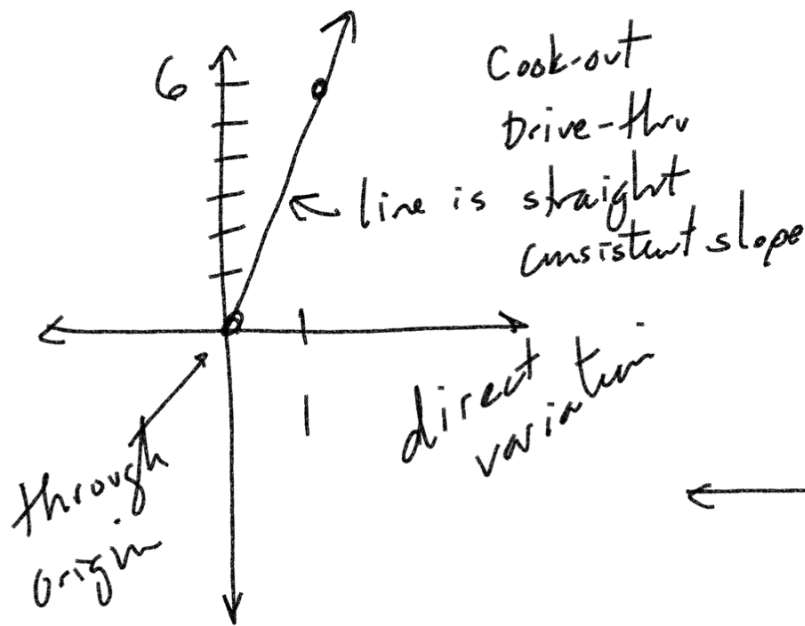 6
Cook-out
Drive-thru
line is straight
consistent slope
1
direct
variation
through
origin